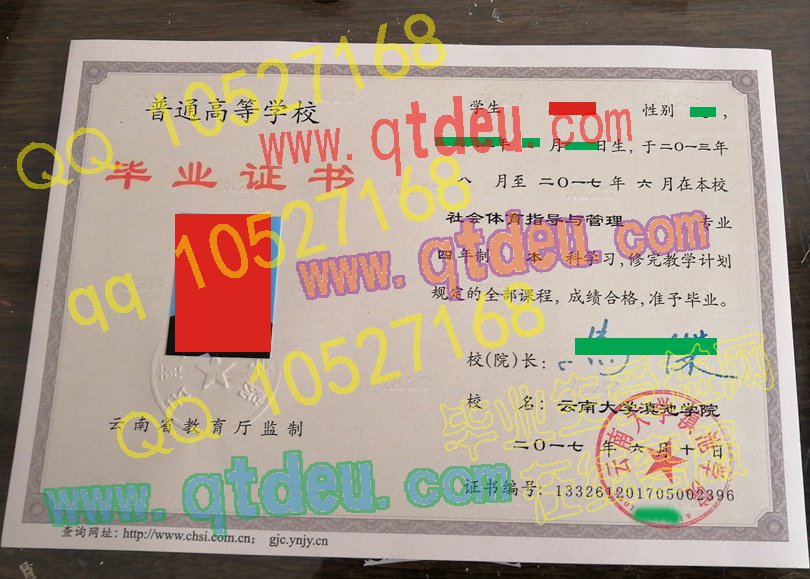 普通高等学校
毕业证书
云南省教育厅监制
查询网址: http://www.chsi.com.cn; gjc.ynjy.cn
学生 性别 ,
月 日生, 于二〇一三年
八 月至 二〇一七 年 六 月在本校
社会体育指导与管理 专业
四年制 本 科学习, 修完教学计划
规定的全部课程, 成绩合格, 准予毕业。
校(院)长:
校 名: 云南大学滇池学院
二〇一七 年 六 月 十 日
证书编号: 133261201705002396
云南大学滇池学院
QQ 10527168
qq 10527168
QQ 10527168
www.qtdeu.com
www.qtdeu.com
www.qtdeu.com